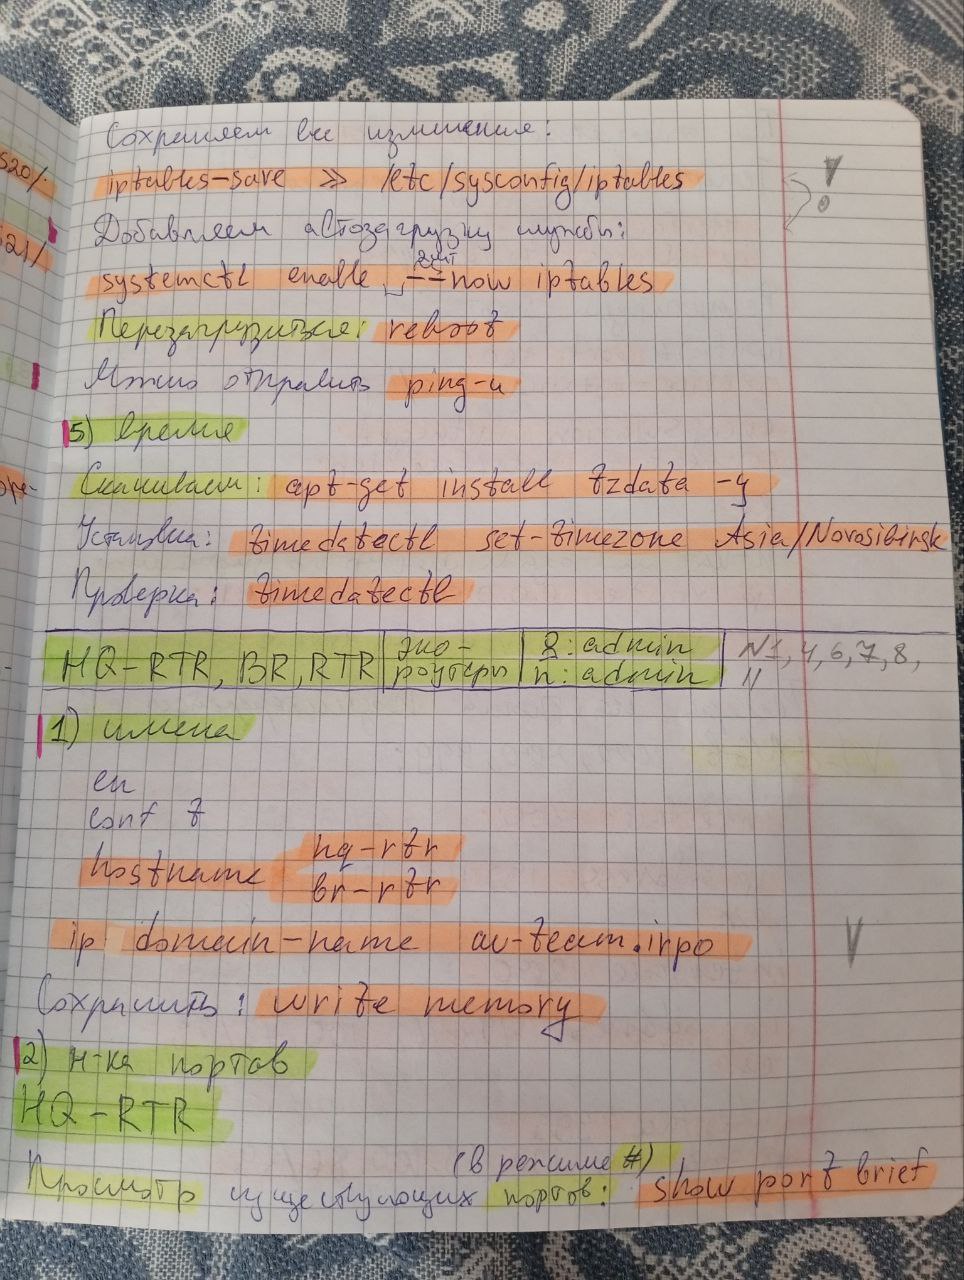 520/.
Сохраняем все изменения:
iptables-save >> /etc/sysconfig/iptables
521/
Добавляем автозагрузку службы:
2шт
systemctl enable --now iptables
Перезагрузиться: reboot
Можно отправить ping-и
5) время
Скачиваем: apt-get install tzdata -y
Установка: timedatectl set-timezone Asia/Novosibirsk
Проверка: timedatectl
HQ-RTR, BR, RTR
эко-
роутеры
л: admin
п: admin
№1, 4, 6, 7, 8,
11
1) имена
en
conf t
hostname hq-rtr
br-rtr
ip domain-name au-team.irpo
Сохранить: write memory
2) н-ка портов
HQ-RTR
(в режиме #)
Просмотр существующих портов: show port brief